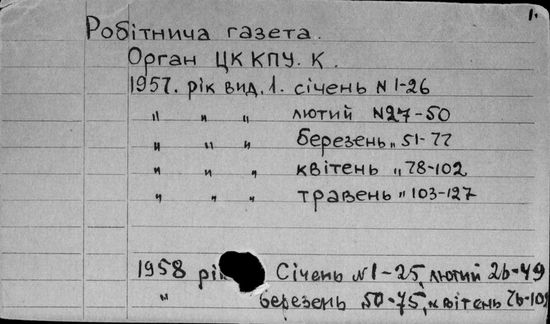 1.
Робітнича газета.
Орган ЦК КПУ. К.
1957. рік вид. 1. січень N 1-26
" " " лютий N27-50
" " " березень " 51-77
" " " квітень " 78-102
" " " травень " 103-127
1958 рік Січень N 1-25, лютий 26-49
" березень 50-75, квітень 76-101